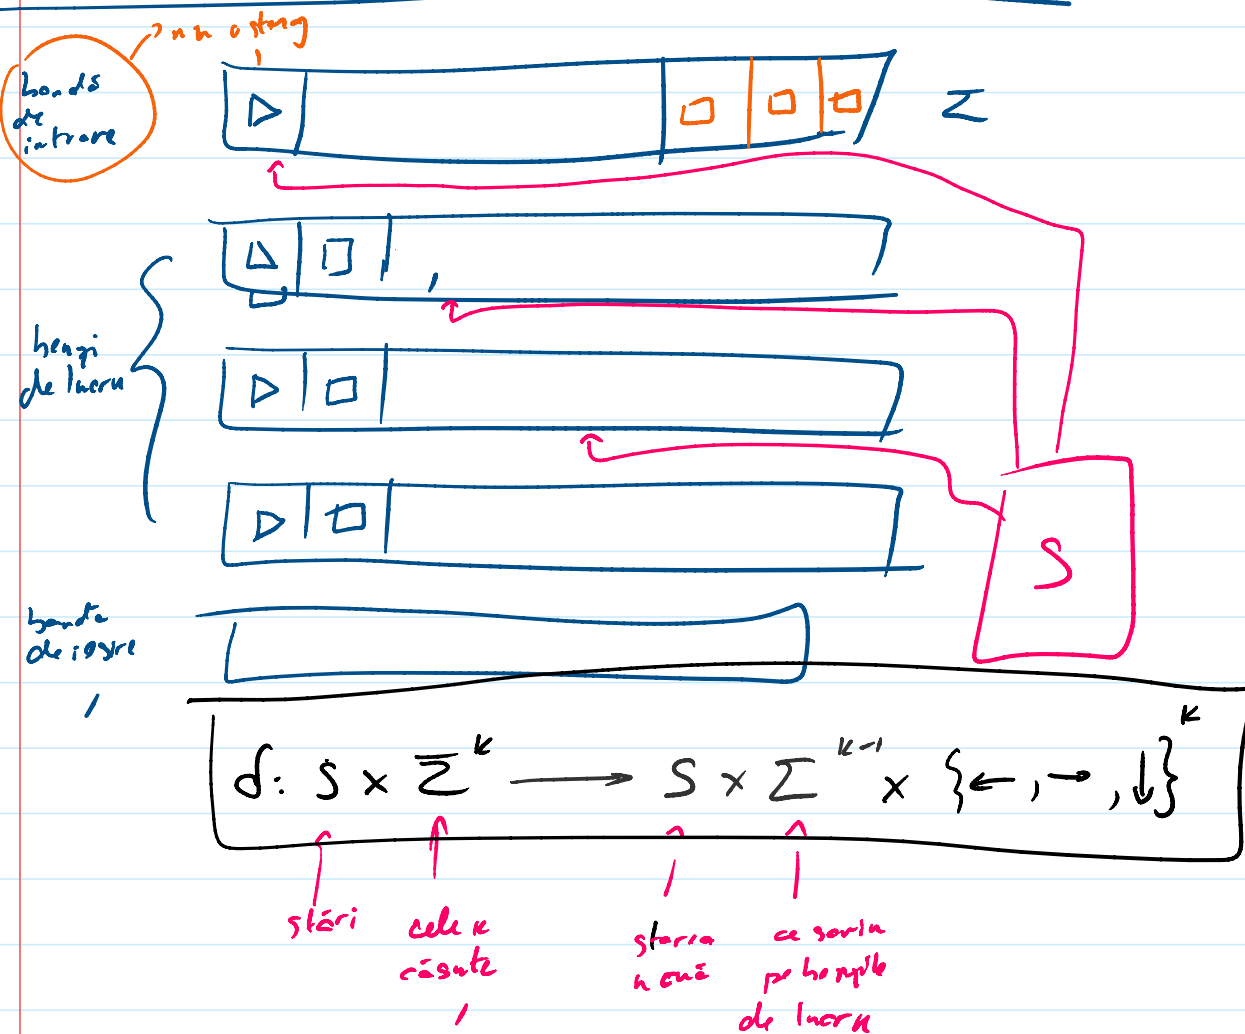 nu o șterg
bandă
de
intrare
▷ □ □ □ Σ
△ □
benzi
de lucru
▷ □
▷ □
S
banda
de ieșire
δ: S × Σ^k ⟶ S × Σ^{k-1} × {←, →, ↓}^k
stări
cele k
căsuțe
starea
nouă
ce scriu
pe benzile
de lucru